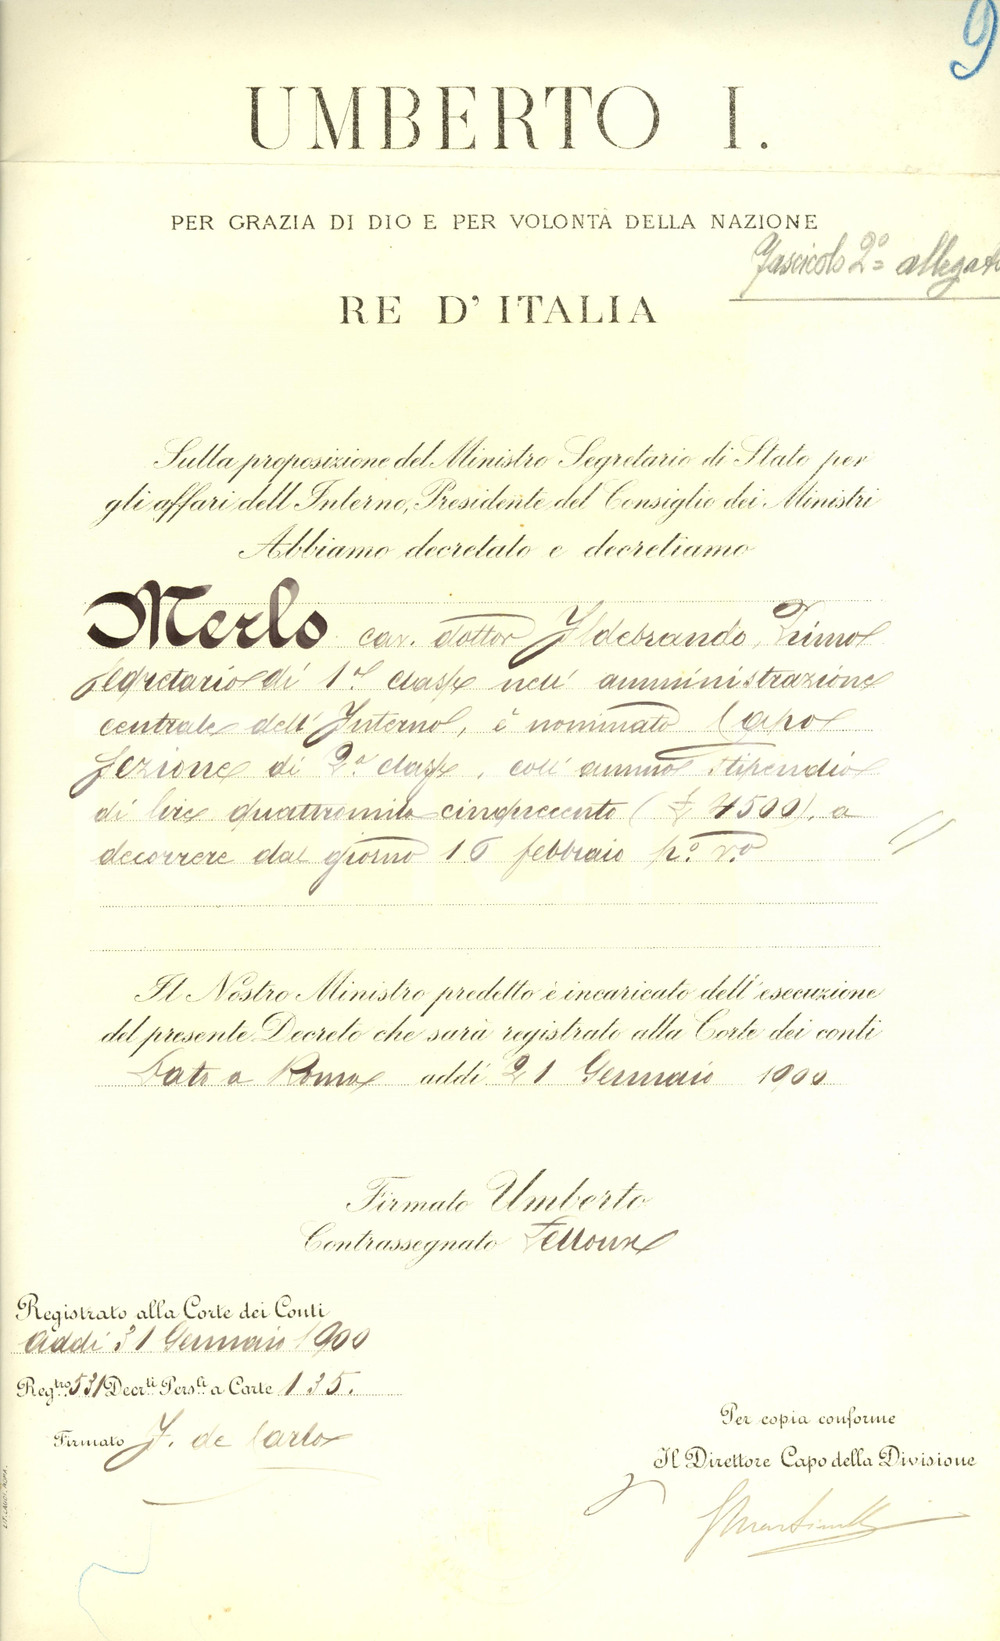 9
UMBERTO I.
PER GRAZIA DI DIO E PER VOLONTÀ DELLA NAZIONE
Fascicolo 2° allegato
RE D'ITALIA
Sulla proposizione del Ministro Segretario di Stato per
gli affari dell'Interno, Presidente del Consiglio dei Ministri
Abbiamo decretato e decretiamo
Merlo cav. dottor Ildebrando, Primo
Segretario di 1ª classe nell'amministrazione
centrale dell'Interno, è nominato Capo
Sezione di 2ª classe, coll'annuo stipendio
di lire quattromila cinquecento (£ 4500), a
decorrere dal giorno 16 febbraio p.° v.°
Il Nostro Ministro predetto è incaricato dell'esecuzione
del presente Decreto che sarà registrato alla Corte dei conti
Dato a Roma addì 21 Gennaio 1900
Firmato Umberto
Contrassegnato Pelloux
Registrato alla Corte dei Conti
Addì 31 Gennaio 1900
Reg.tro 531 Decr.ti Pers.li a Carte 135.
Firmato J. de Carlo
Per copia conforme
Il Direttore Capo della Divisione